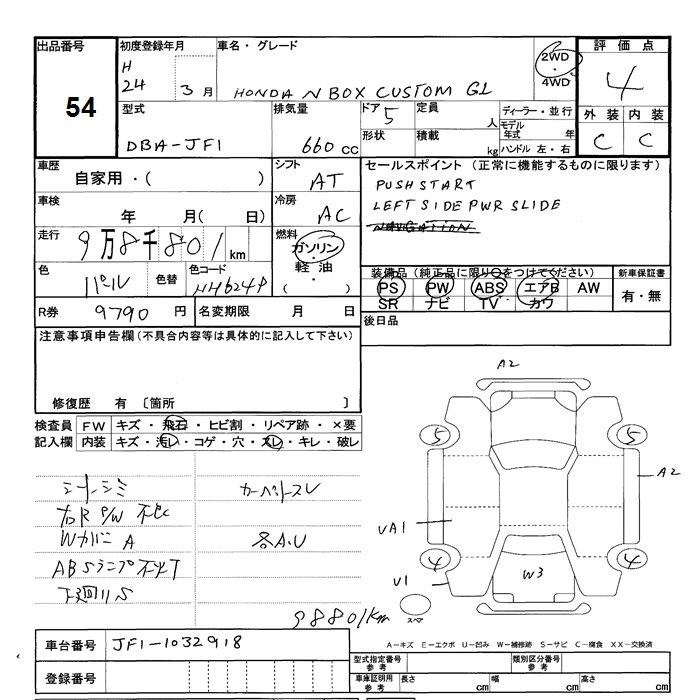 出品番号 初度登録年月 車名・グレード 評価点
54
H 24 3月 HONDA N BOX CUSTOM GL
2WD ・ 4WD
4
型式 排気量 ドア 定員 ディーラー・並行 外装 内装
DBA-JF1 660cc 5 人 モデル年式 年 C C
形状 積載 kg ハンドル 左・右
車歴 シフト セールスポイント(正常に機能するものに限ります)
自家用・( ) AT PUSH START
車検 冷房 LEFT SIDE PWR SLIDE
年 月( 日) AC NAVIGATION
走行 燃料
9万8千801km ガソリン・軽油・( )
色 色替 色コード 装備品(純正品に限り○をつけてください) 新車保証書
パール NH624P PS PW ABS エアB AW 有・無
SR ナビ TV カワ
R券 9790円 名変期限 月 日 後日品
注意事項申告欄(不具合内容等は具体的に記入して下さい)
修復歴 有 〔箇所 〕
検査員記入欄 FW キズ・飛石・ヒビ割・リペア跡・×要
内装 キズ・汚レ・コゲ・穴・スレ・キレ・破レ
シートシミ カーペットスレ
右R P/W 不
Wカバー A 各A.U
ABSランプ不
下廻りS
98801km
A2
5 5
A2
UA1
4 4
U1 W3
スペア
車台番号 JF1-1032918
A-キズ E-エクボ U-凹み W-補修跡 S-サビ C-腐食 XX-交換済
型式指定番号 参考 類別区分番号 参考
登録番号 車庫証明用 参考 長さ cm 幅 cm 高さ cm